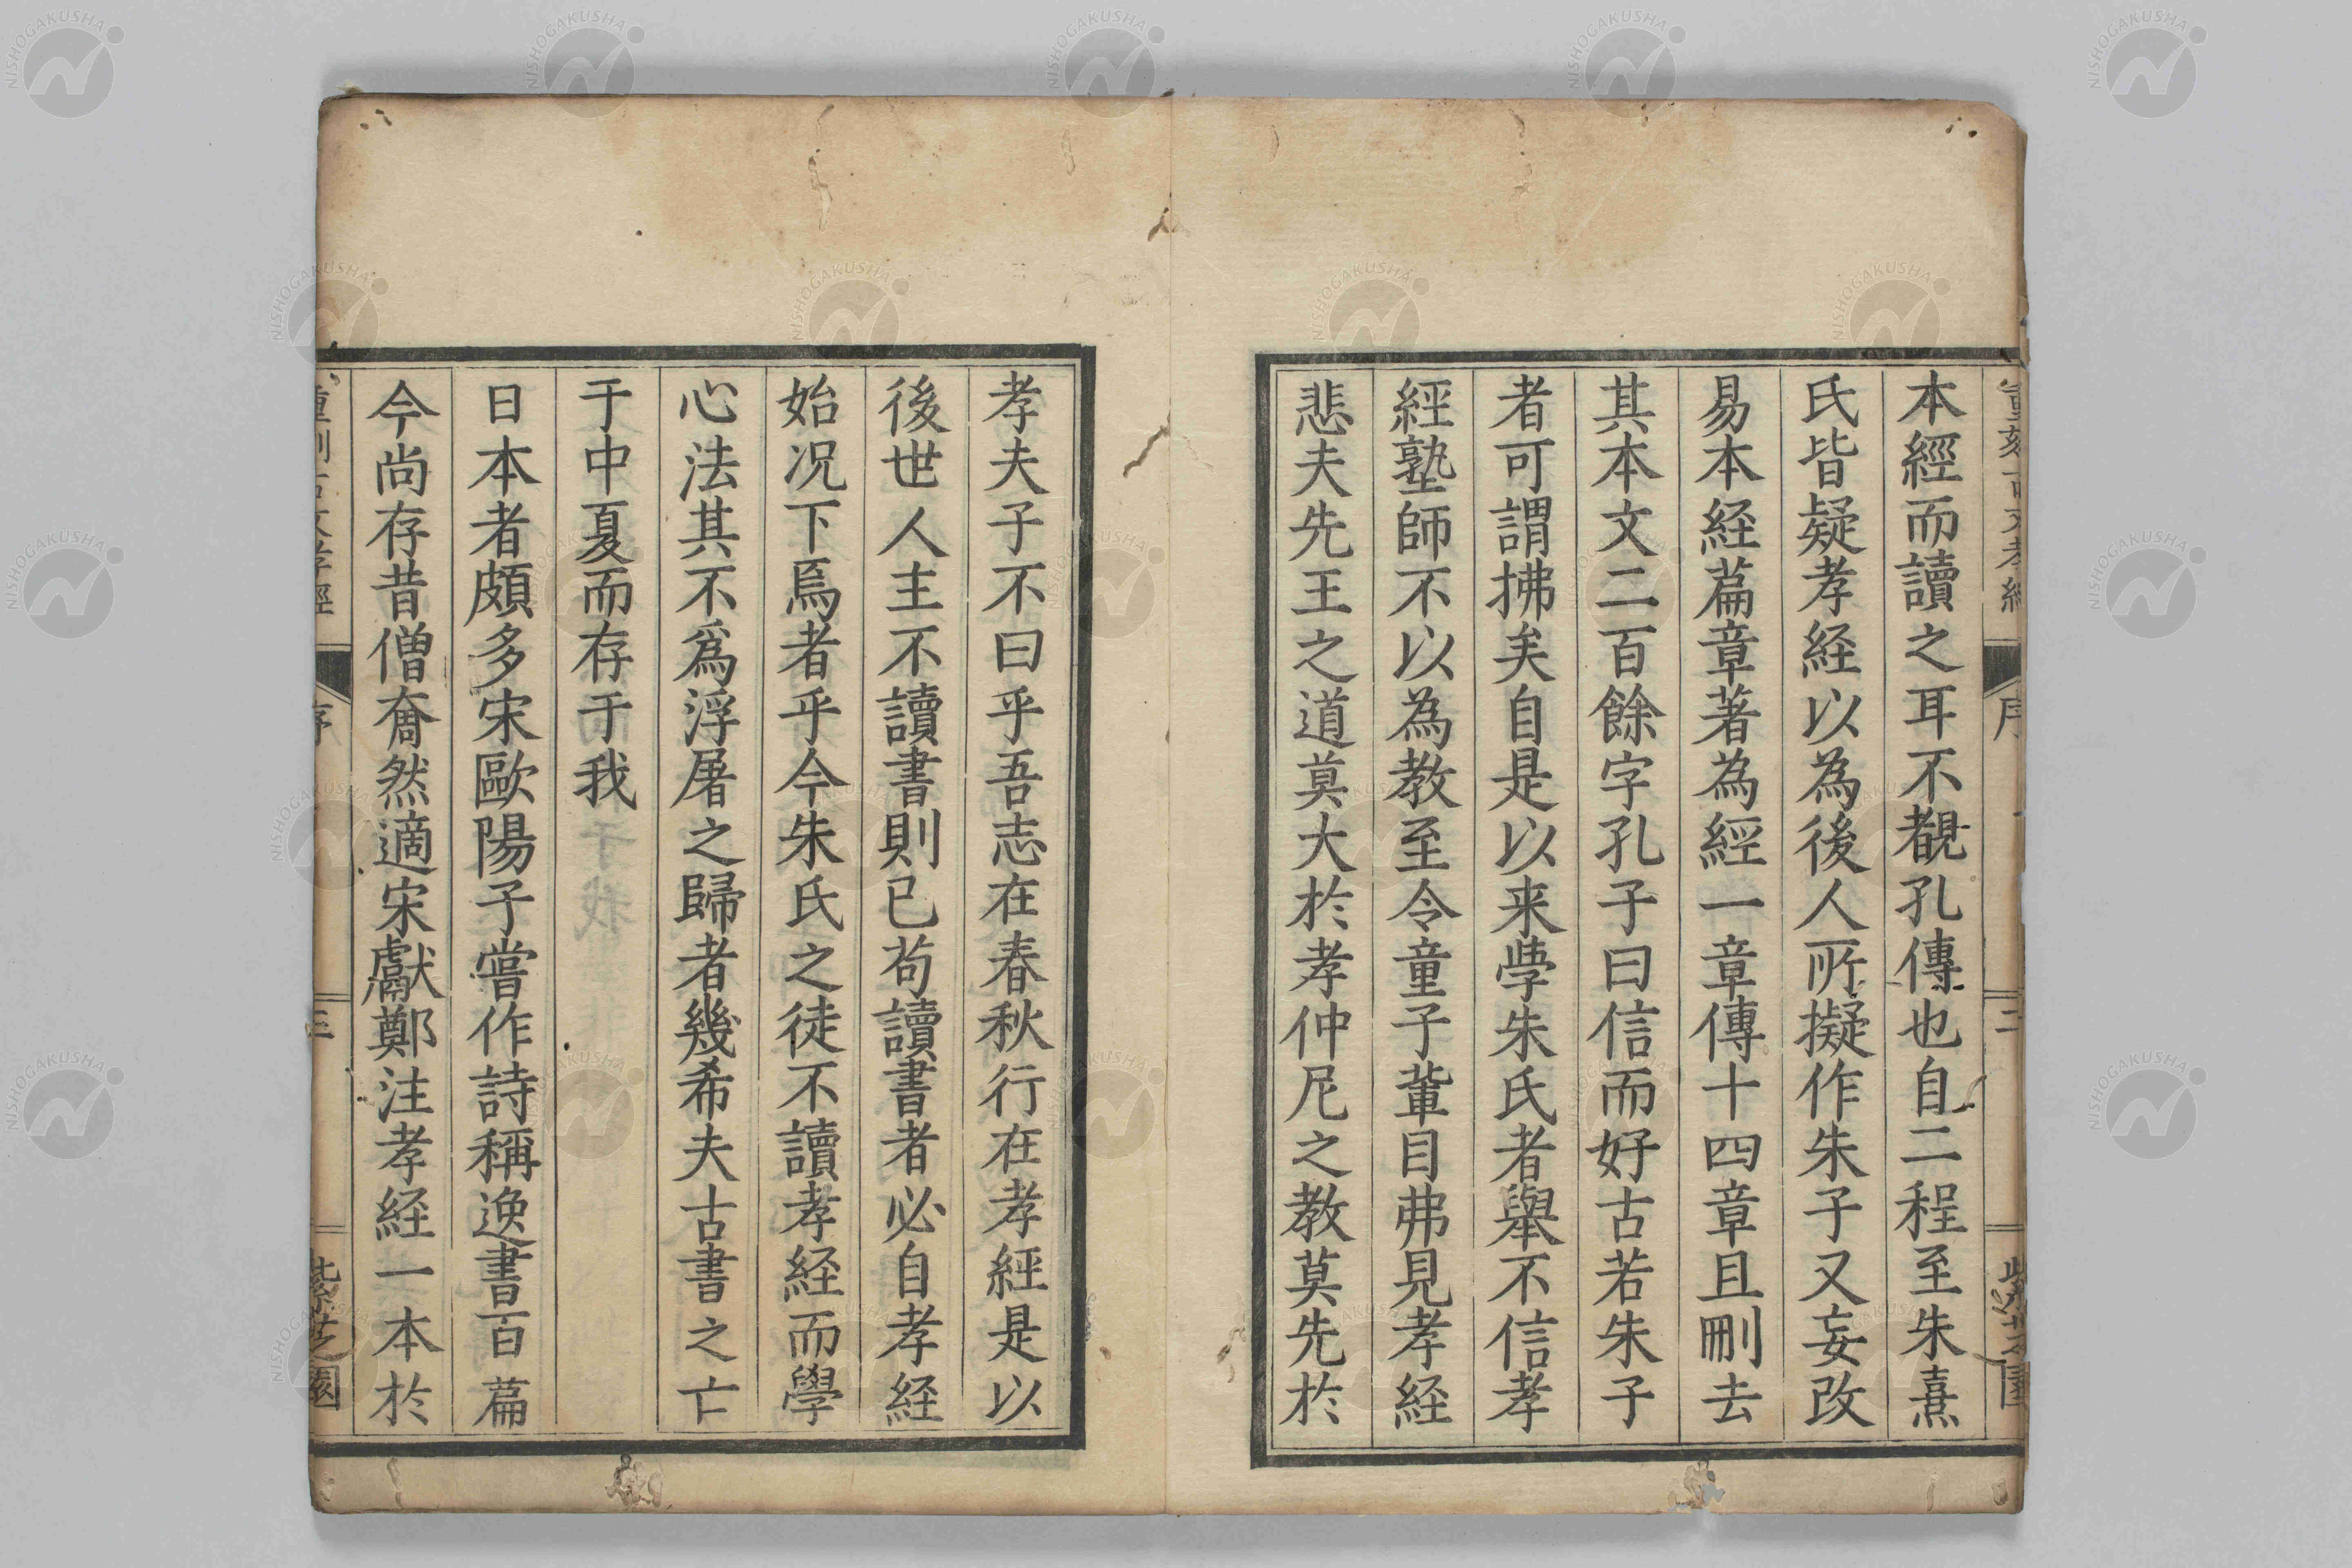 本經而讀之耳不覩孔傳也自二程至朱熹
氏皆疑孝経以為後人所擬作朱子又妄改
易本経篇章著為經一章傳十四章且刪去
其本文二百餘字孔子曰信而好古若朱子
者可謂拂矣自是以来學朱氏者舉不信孝
經塾師不以為教至令童子輩目弗見孝経
悲夫先王之道莫大於孝仲尼之教莫先於
孝夫子不曰乎吾志在春秋行在孝經是以
後世人主不讀書則已苟讀書者必自孝経
始况下焉者乎今朱氏之徒不讀孝経而學
心法其不爲浮屠之歸者幾希夫古書之亡
于中夏而存于我
日本者頗多宋歐陽子嘗作詩稱逸書百篇
今尚存昔僧奝然適宋獻鄭注孝経一本於
重刻古文孝經
序
三
紫芝園